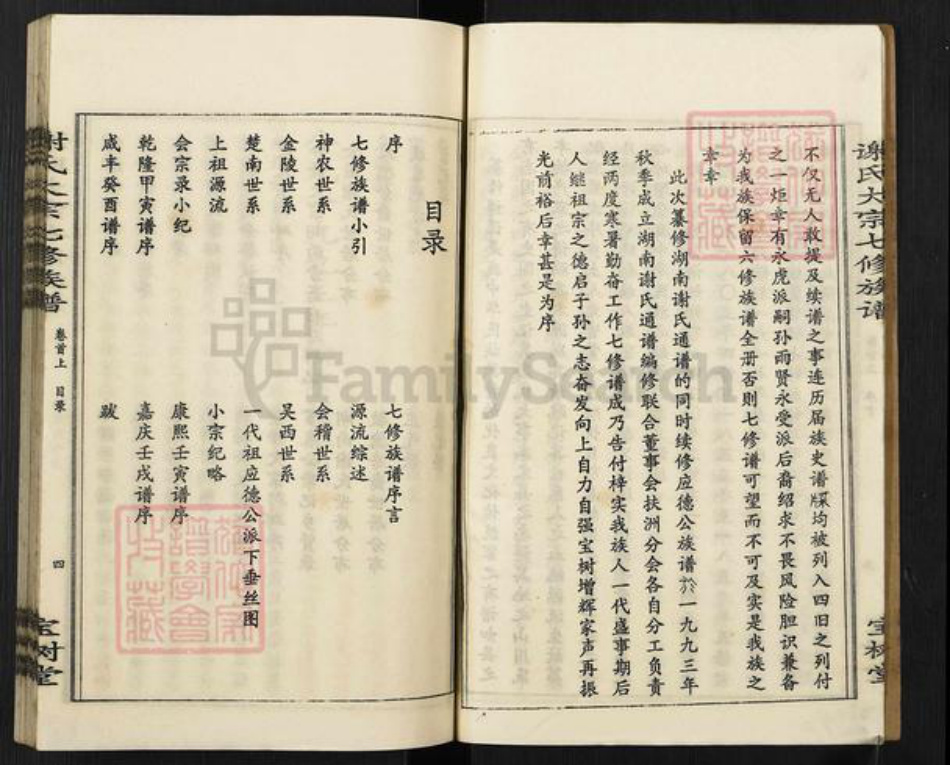 谢氏大宗七修族谱
宝树堂
不仅无人敢提及续谱之事连历届族史谱牒均被列入四旧之列付
之一炬幸有永虎派嗣孙雨贤永受派后裔绍求不畏风险胆识兼备
为我族保留六修族谱全册否则七修谱可望而不可及实是我族之
幸幸
此次纂修湖南谢氏通谱的同时续修应德公族谱於一九九三年
秋季成立湖南谢氏通谱编修联合董事会扶洲分会各自分工负责
经两度寒暑勤奋工作七修谱成乃告付梓实我族人一代盛事期后
人继祖宗之德启子孙之志奋发向上自力自强宝树增辉家声再振
光前裕后幸甚是为序
目录
序
七修族谱序言
七修族谱小引
源流综述
神农世系
会稽世系
金陵世系
吴西世系
楚南世系
一代祖应德公派下垂丝图
上祖源流
小宗纪略
会宗录小纪
康熙壬寅谱序
乾隆甲寅谱序
嘉庆壬戌谱序
咸丰癸酉谱序
跋
谢氏大宗七修族谱
卷首上 目录
四
宝树堂
FamilySearch